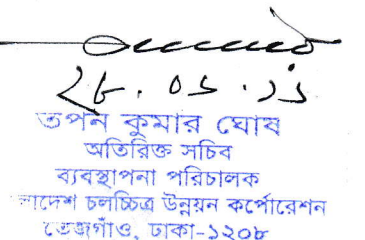 তপন কুমার ঘোষ
অতিরিক্ত সচিব
ব্যবস্থাপনা পরিচালক
লাদেশ চলচ্চিত্র উন্নয়ন কর্পোরেশন
তেজগাঁও, ঢাকা-১২০৮